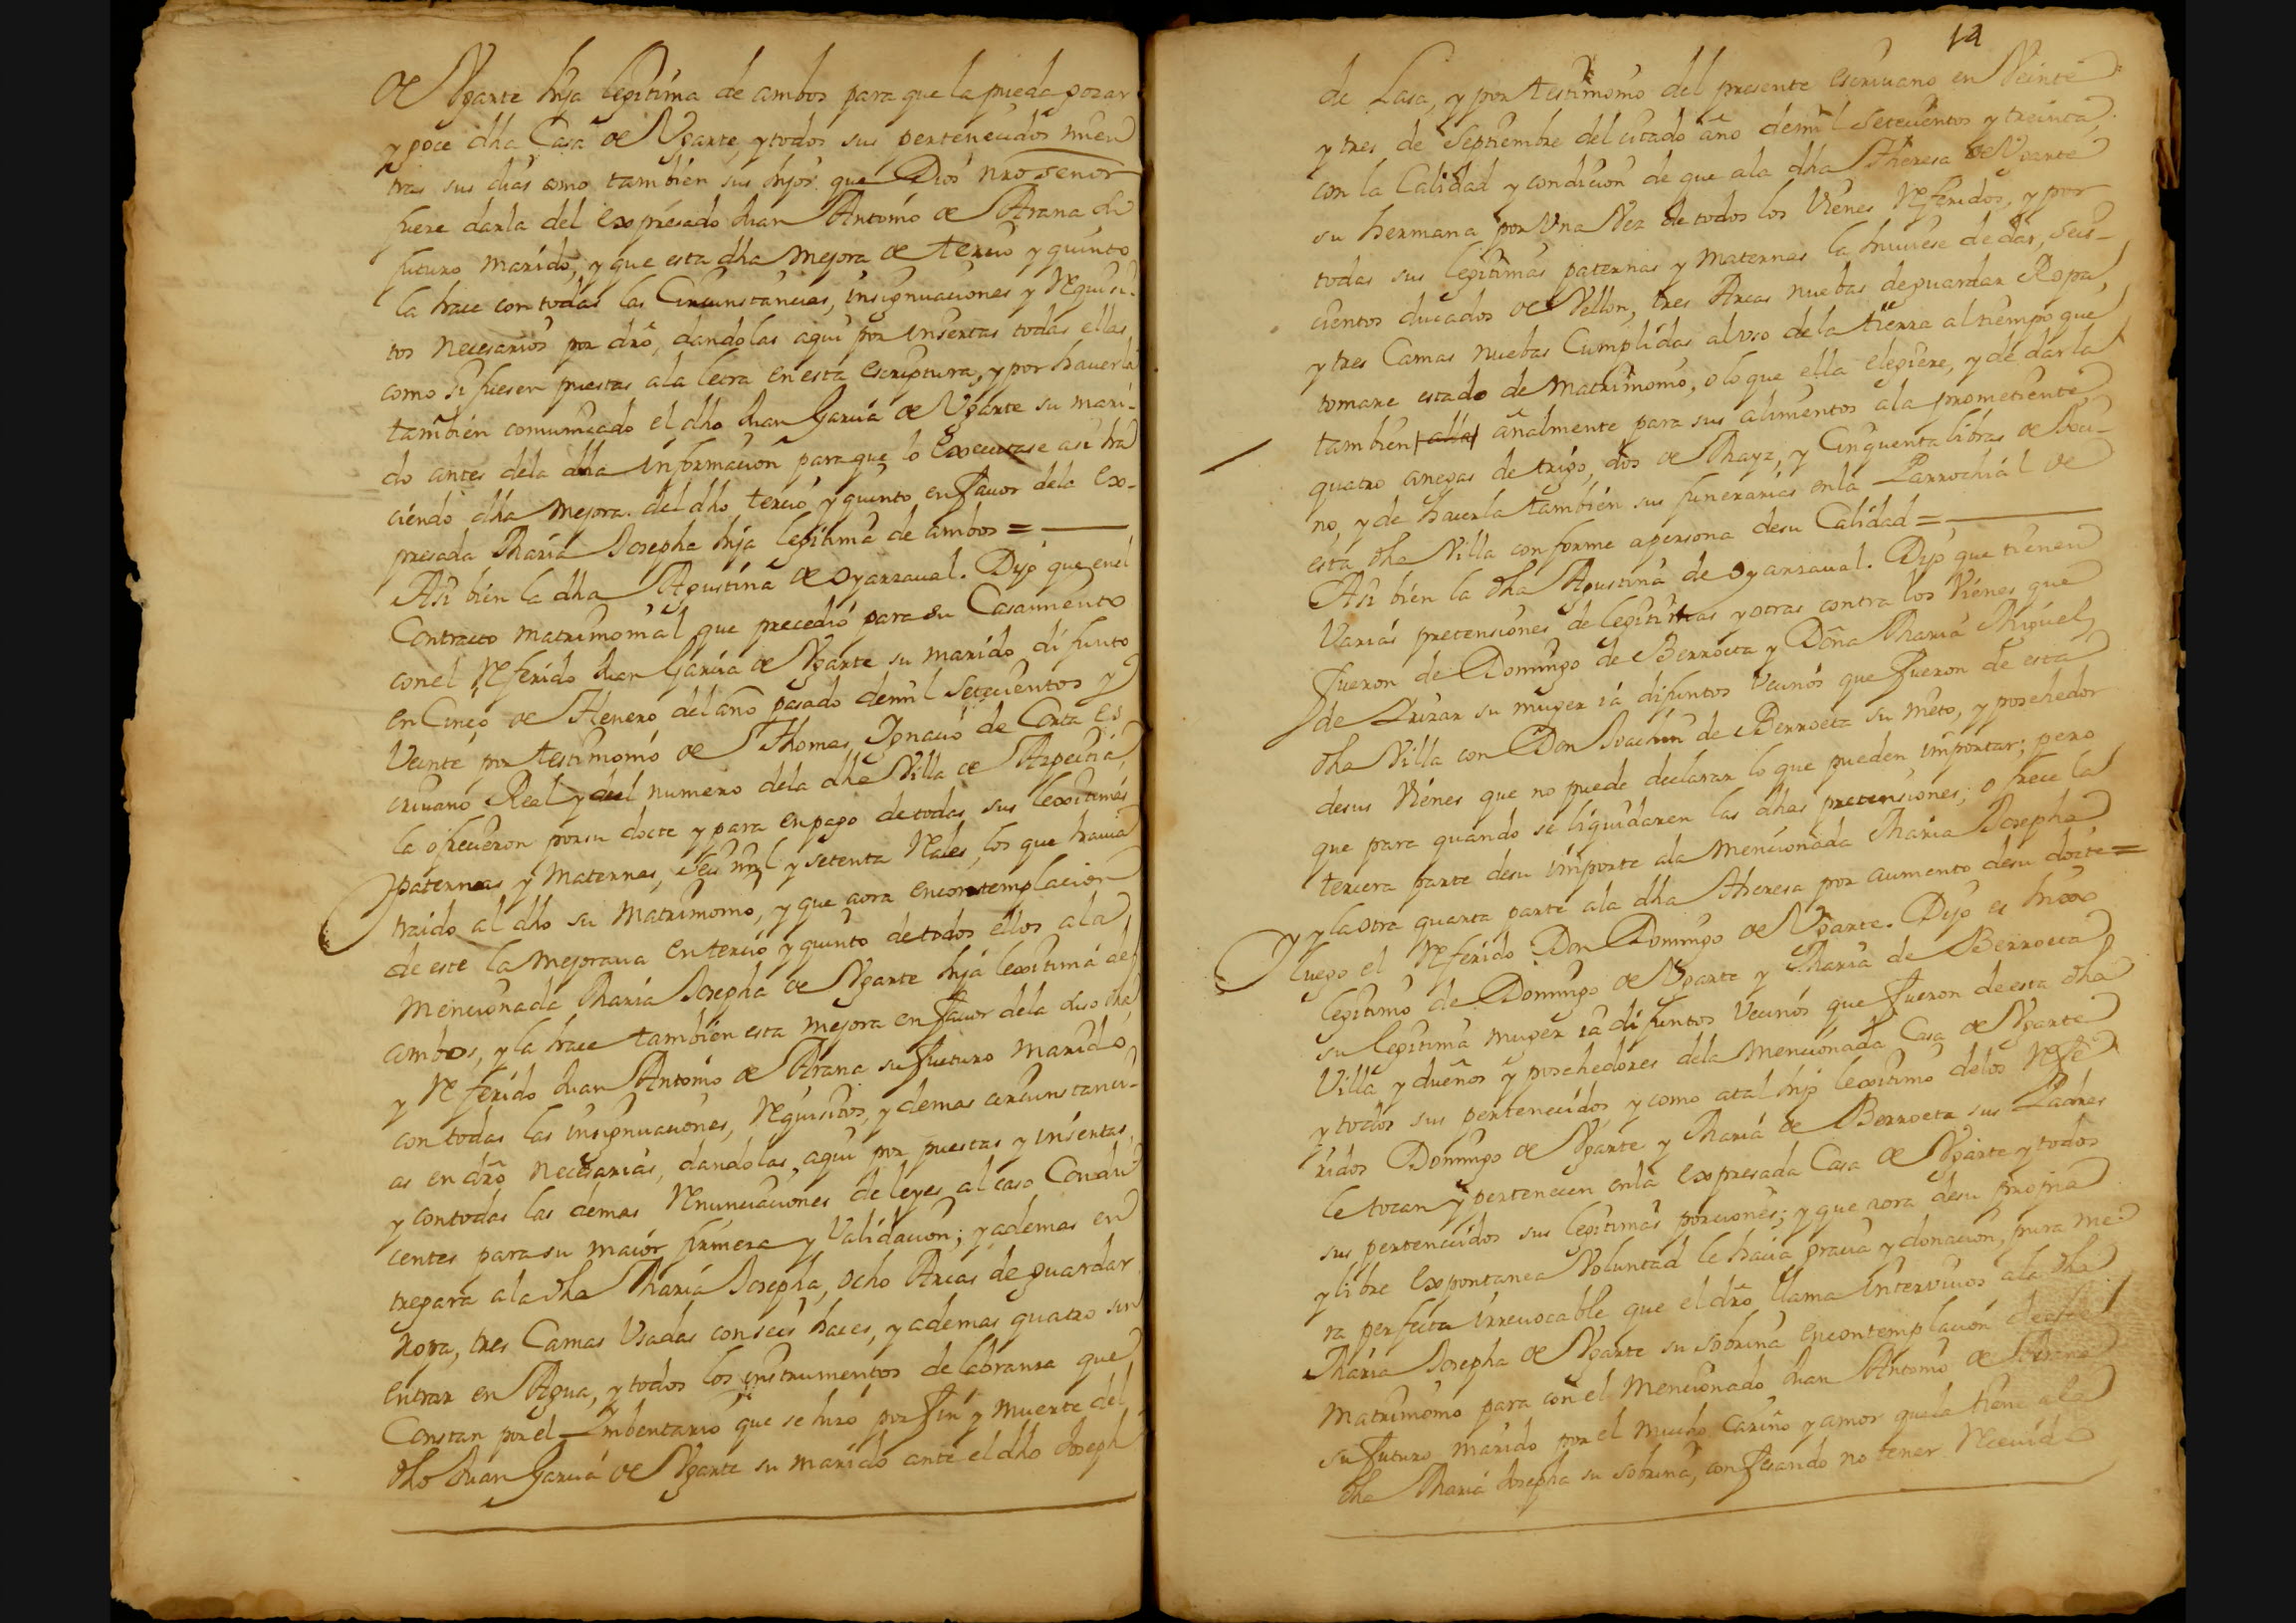 de Vgarte hija legitima de ambos para que la pueda gozar
y goce dha Casa de Vgarte, y todos sus pertenecidos mien
tras sus dias como tambien sus hijos que Dios nro señor
fuere darla del expresado Juan Antonio de Arana su
futuro marido, y que esta dha mejora de tercio y quinto
la hace con todas las Circunstancias, insignuaciones y requisi-
tos necesarios por dro, dandolas aqui por insertas todas ellas
como si fuesen puestas ala letra en esta escriptura, y por hauerla
tambien comunicado el dho Juan Garcia de Vgarte su mari-
do antes dela dha informacion para que lo executase asi ha
ciendo dha mejora del dho tercio y quinto en fauor dela ex-
presada Maria Josepha hija legitima de ambos =
Asi bien la dha Agustina de Oyarzaual. Dijo que en el
Contracto matrimonial que precedio para su Casamiento
con el referido Juan Garcia de Vgarte su marido difunto
en Cinco de Henero del año pasado de mil setecientos y
Veinte por testimonio de Thomas Ignacio de Corta es
criuano Real y del numero dela dha Villa de Azpeitia,
la ofrecieron por su docte y para en pago de todas sus lexitimas
paternas y maternas, seis mil y setenta reales, los que hauia
traido al dho su matrimonio, y que aora en contemplacion
de este la mejoraua en tercio y quinto de todos ellos ala
mencionada Maria Josepha de Vgarte hija lexitima de
ambos, y la hace tambien esta mejora en fauor dela suso dha
y referido Juan Antonio de Arana su futuro marido,
con todas las insignuaciones, requisitos, y demas circunstanci-
as en dro necesarias, dandolas aqui por puestas y insertas,
y con todas las demas renunciaciones de leyes al caso Condu
centes para su maior firmeza y Validacion; y ademas en
tregara ala dha Maria Josepha, ocho Arcas de guardar
ropa, tres Camas Vsadas con seis haces, y ademas quatro sin
entrar en Agua, y todos los instrumentos de labranza que
Constan por el Imbentario que se hizo por fin y muerte del
dho Juan Garcia de Vgarte su marido ante el dho Joseph
14
de Lasa, y por testimonio del presente escriuano en Veinte
y tres de Septiembre del citado año de mil setecientos y treinta,
con la Calidad y condicion de que ala dha Theresa de Vgarte
su hermana por Vna Vez de todos los Vienes referidos, y por
todas sus legitimas paternas y maternas la huuiese de dar, seis-
cientos ducados de Vellon, tres Arcas nuebas de guardar Ropa,
y tres Camas nuebas Cumplidas al vso de la tierra al tiempo que
tomare estado de matrimonio, o lo que ella eligiere, y de darla
tambien alla añalmente para sus alimentos ala prometiente,
quatro anegas de trigo, dos de Mayz, y Cinquenta libras de toci-
no, y de hacerla tambien sus funerarias en la Parrochial de
esta dha Villa conforme a persona de su Calidad =
Asi bien la dha Agustina de Oyarzaual. Dijo que tienen
Varias pretensiones de legitimas y otras contra los Vienes que
fueron de Domingo de Berroeta y Doña Maria Miguel
de Irizar su muger ia difuntos Vecinos que fueron de esta
dha Villa con Don Joachin de Berroeta su nieto, y posehedor
de sus Vienes que no puede declarar lo que pueden importar; pero
que para quando se liquidaren las dhas pretensiones, ofrece la
tercera parte de su importe ala mencionada Maria Josepha
y la otra quarta parte ala dha Theresa por aumento de su docte =
Y luego el referido Don Domingo de Vgarte. Dijo es hixo
legitimo de Domingo de Vgarte y Maria de Berroeta
su legitima muger ia difuntos Vecinos que fueron de esta dha
Villa y dueños y posehedores dela mencionada Casa de Vgarte
y todos sus pertenecidos, y como a tal hijo lexitimo delos refe
ridos Domingo de Vgarte y Maria de Berroeta sus Padres
le tocan y pertenecen en la expresada Casa de Vgarte y todos
sus pertenecidos sus legitimas porciones; y que aora de su propria
y libre expontanea Voluntad le hacia gracia y donacion, pura me-
ra perfecta irreuocable que el dro llama intervivos ala dha
Maria Josepha de Vgarte su sobrina en contemplacion de este
matrimonio para con el mencionado Juan Antonio de Arana
su futuro marido por el mucho Cariño y amor que la tiene ala
dha Maria Josepha su sobrina, confesando no tener necesid